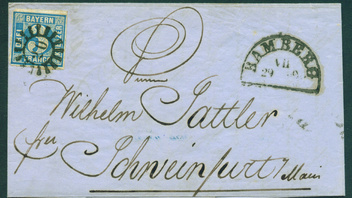 BAYERN
BAMBERG
VII
Wilhelm Sattler
Schweinfurt
Main